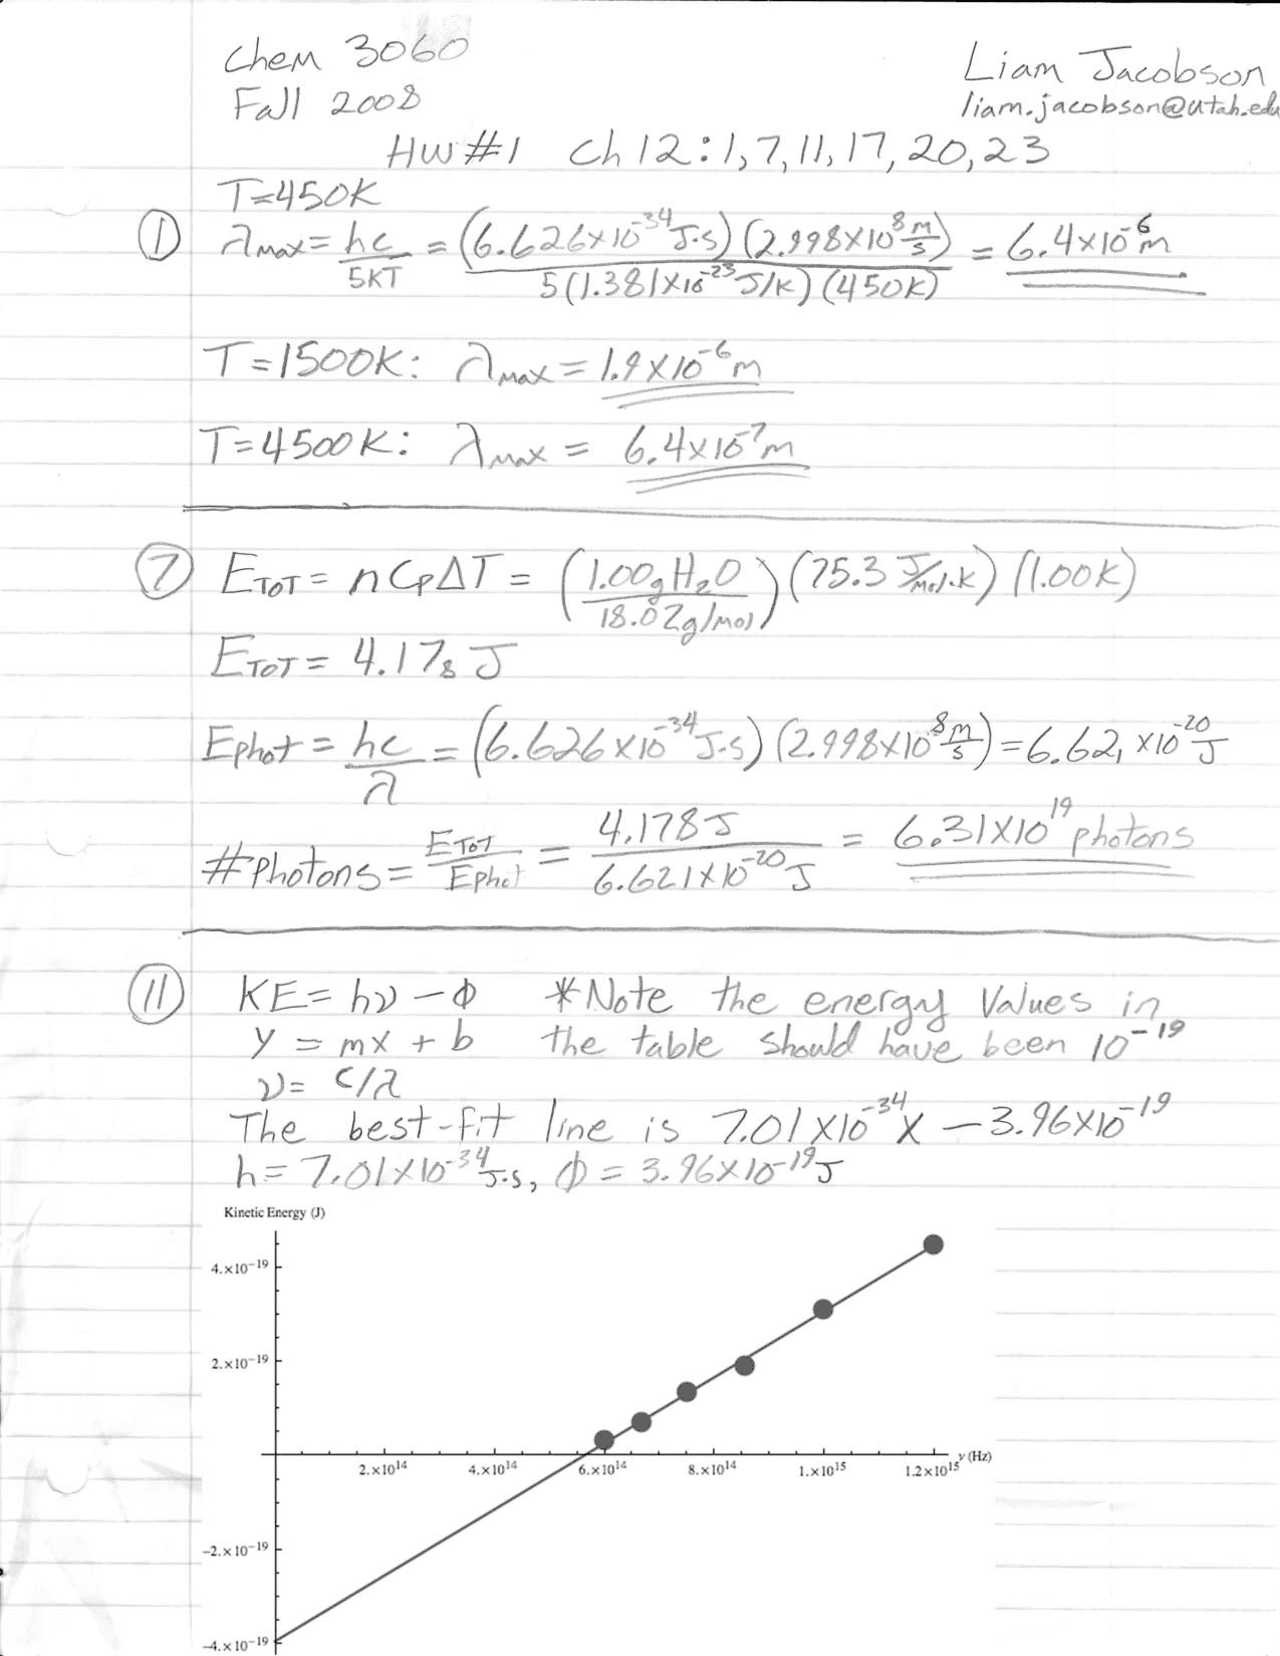 Chem 3060
Liam Jacobson
Fall 2008
liam.jacobson@utah.edu
HW #1 Ch 12: 1, 7, 11, 17, 20, 23
T=450K
① λmax = hc/5kT = (6.626×10⁻³⁴ J·s)(2.998×10⁸ m/s) / 5(1.381×10⁻²³ J/K)(450K) = 6.4×10⁻⁶ m
T=1500K: λmax = 1.9×10⁻⁶ m
T=4500K: λmax = 6.4×10⁻⁷ m
⑦ ETOT = nCpΔT = (1.00g H₂O / 18.02g/mol)(75.3 J/mol·K)(1.00K)
ETOT = 4.17₈ J
Ephot = hc/λ = (6.626×10⁻³⁴ J·s)(2.998×10⁸ m/s) = 6.62₁ ×10⁻²⁰ J
#Photons = ETOT/Ephot = 4.178 J / 6.621×10⁻²⁰ J = 6.31×10¹⁹ photons
⑪ KE = hν − ϕ *Note the energy values in
y = mx + b the table should have been 10⁻¹⁹
ν = c/λ
The best-fit line is 7.01×10⁻³⁴ x − 3.96×10⁻¹⁹
h = 7.01×10⁻³⁴ J·s, ϕ = 3.96×10⁻¹⁹ J
Kinetic Energy (J)
4.×10⁻¹⁹
2.×10⁻¹⁹
2.×10¹⁴ 4.×10¹⁴ 6.×10¹⁴ 8.×10¹⁴ 1.×10¹⁵ 1.2×10¹⁵ ν (Hz)
−2.×10⁻¹⁹
−4.×10⁻¹⁹